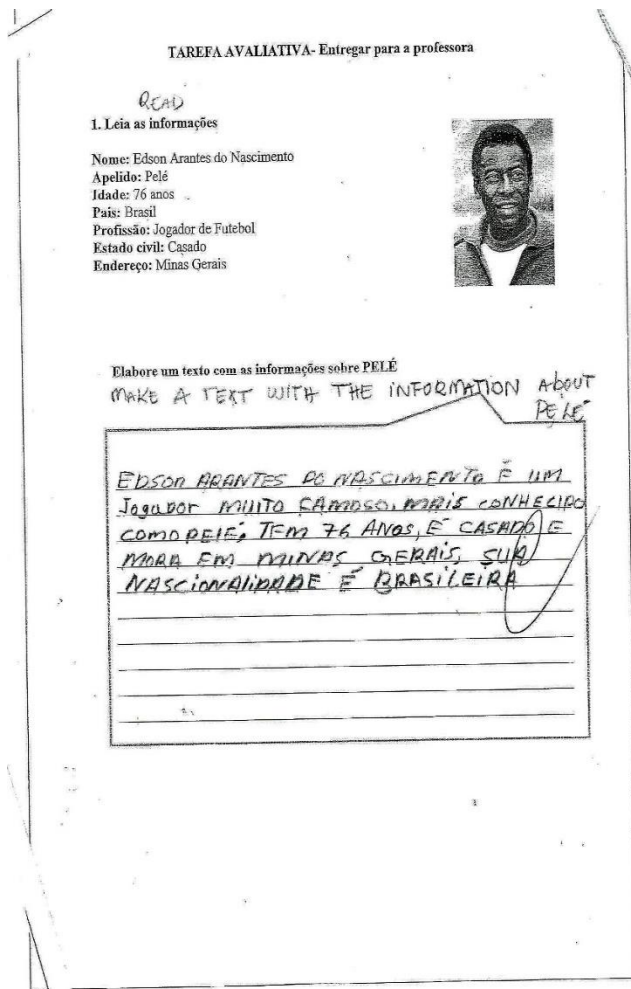 TAREFA AVALIATIVA- Entregar para a professora
READ
1. Leia as informações
Nome: Edson Arantes do Nascimento
Apelido: Pelé
Idade: 76 anos
Pais: Brasil
Profissão: Jogador de Futebol
Estado civil: Casado
Endereço: Minas Gerais
Elabore um texto com as informações sobre PELÉ
MAKE A TEXT WITH THE INFORMATION About
PELÉ
EDSON ARANTES DO NASCIMENTO É UM
Jogador MUITO FAMOSO, MAIS CONHECIDO
COMO PELÉ, TEM 76 ANOS, É CASADO E
MORA EM MINAS GERAIS, SUA
NASCIONALIDADE É BRASILEIRA